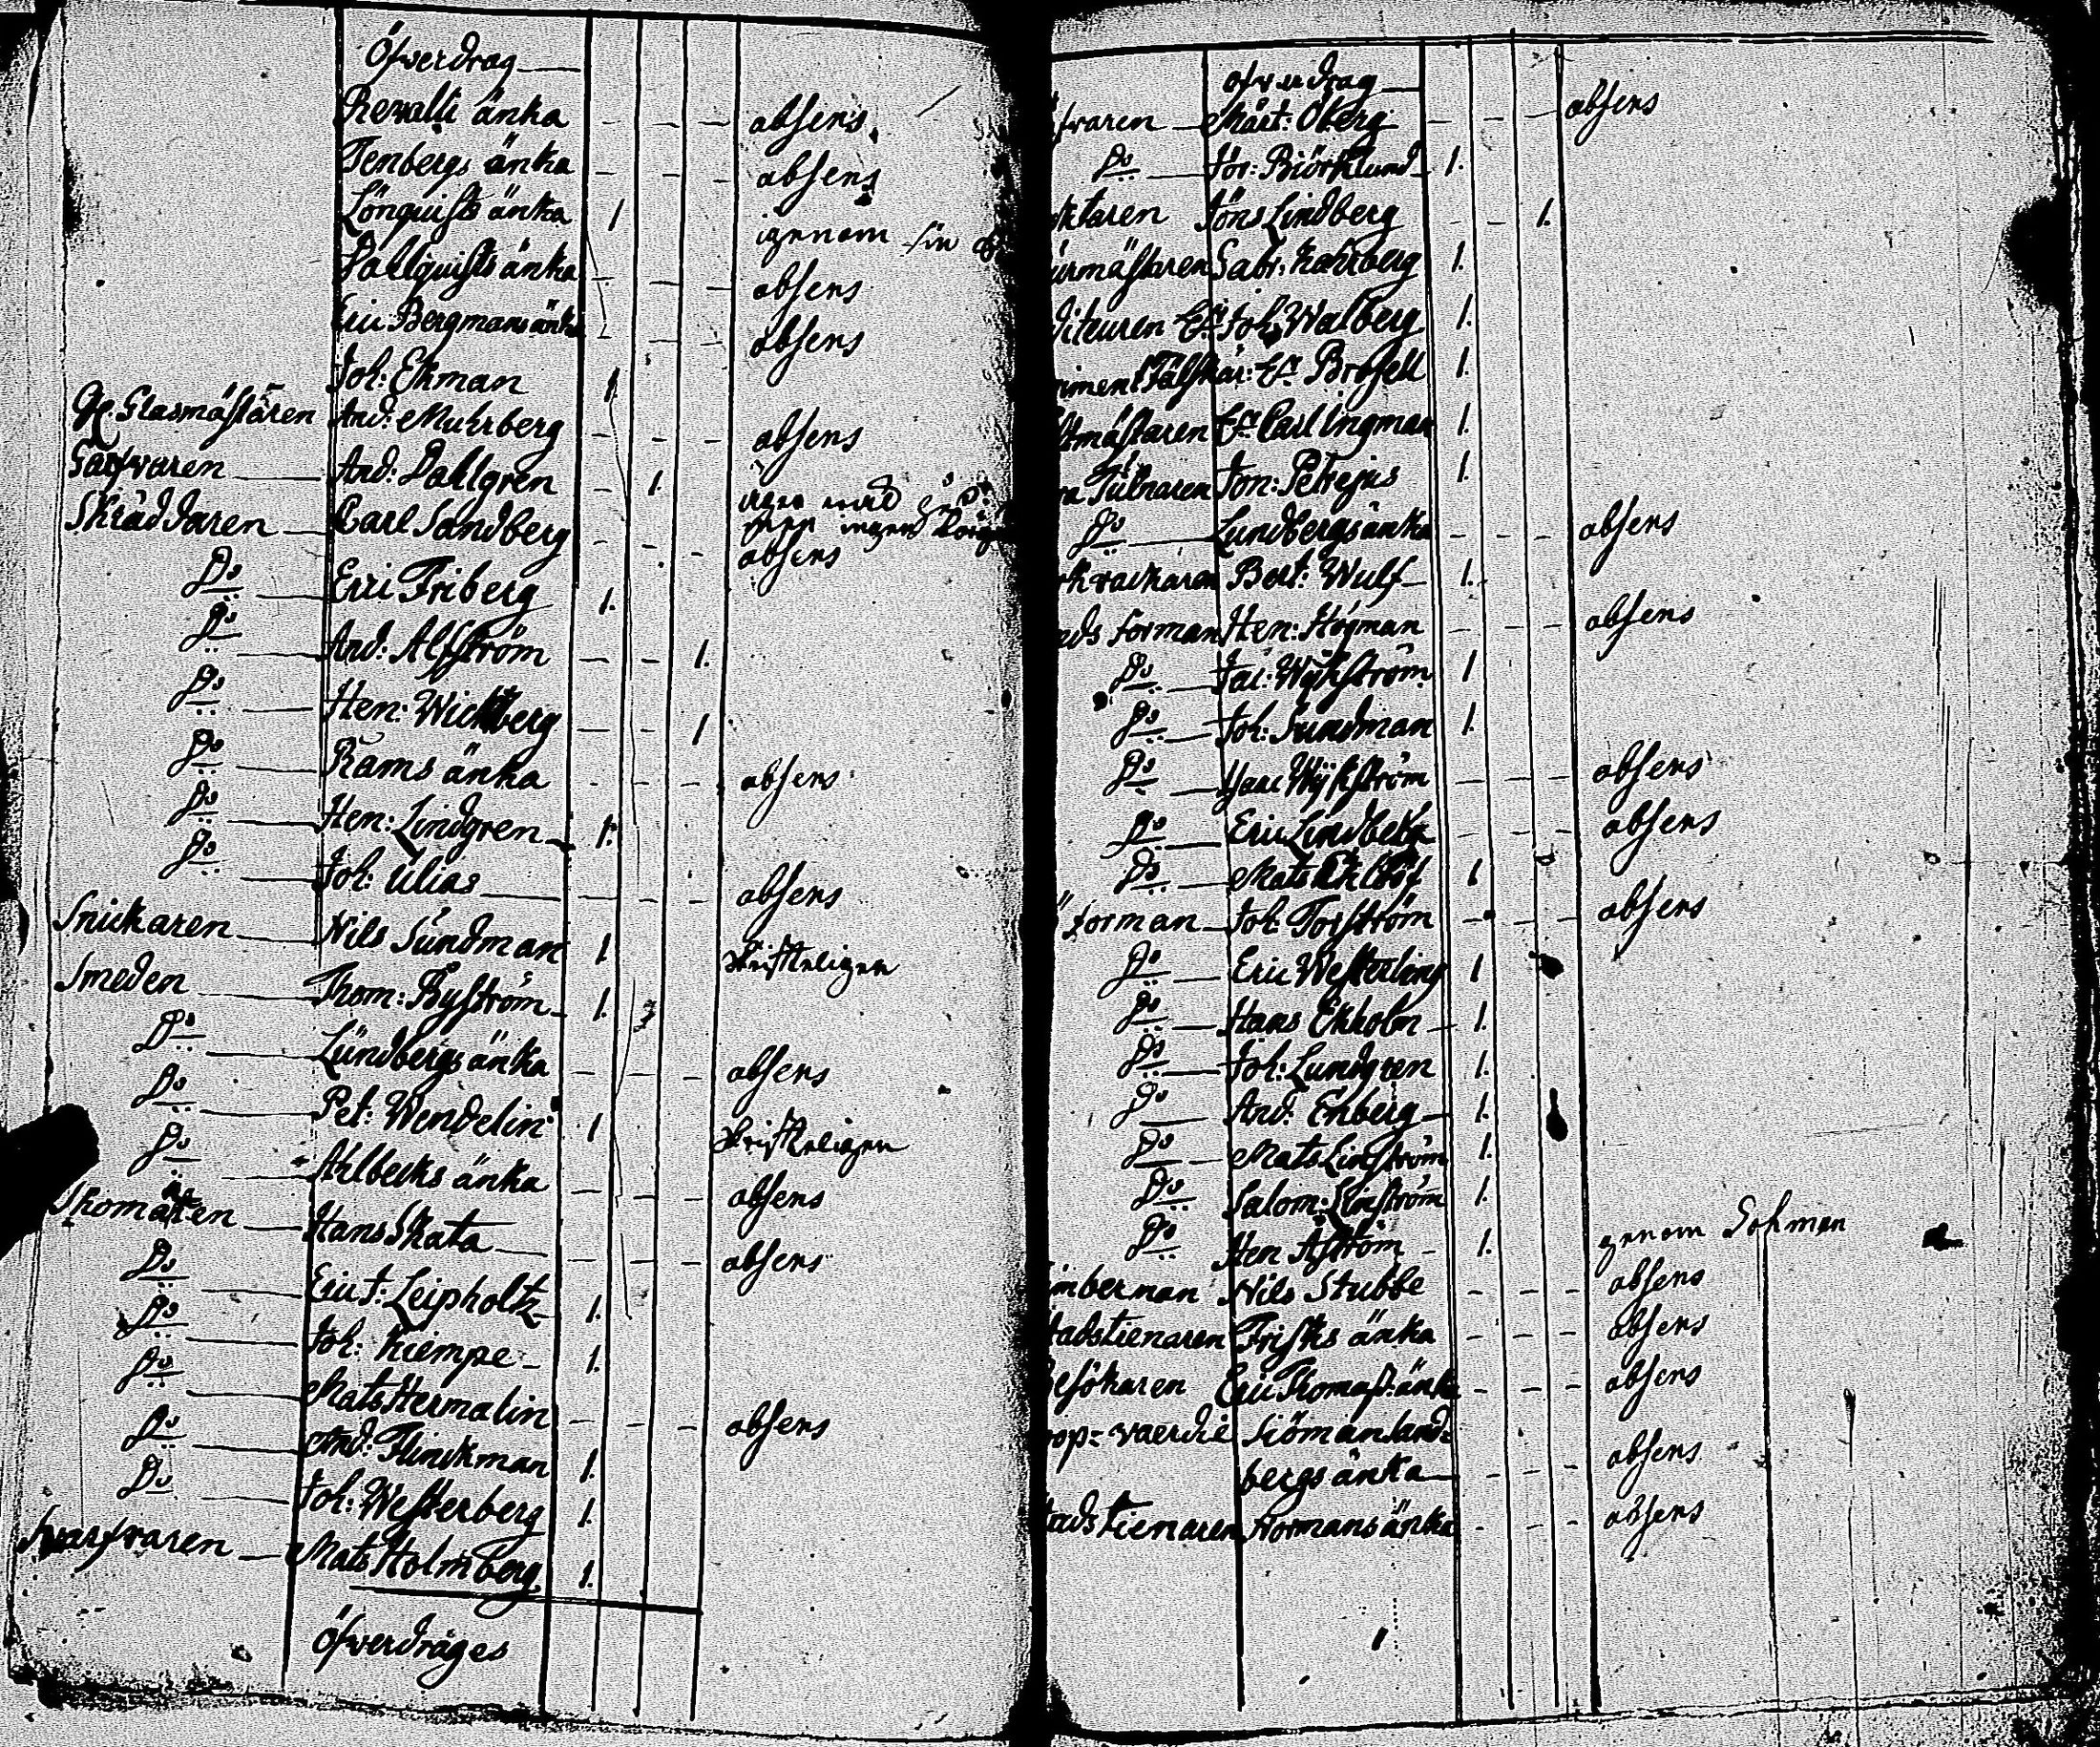 Öfverdrag
Revalli änka - - - absens
Tenbergs änka - - - absens
Lönquists änka 1 igenom sin
Dahlquists änka - - - absens
Eric Bergmans änka - - - absens
Joh: Ekman 1.
Glasmästaren And: Muhrberg - - - absens
Garfvaren And: Dahlgren - 1.
Skräddaren Carl Sandberg - - - absens
Do Eric Friberg 1.
Do And: Alfström - - 1.
Do Hen: Wickberg - - 1
Do Rams änka - - - absens
Do Hen: Lindgren 1.
Do Joh: Ulias - - - absens
Snickaren Nils Sundman 1 skrifteligen
Smeden Thom: Byström 1.
Do Lundbergs änka - - - absens
Do Pet: Wendelin 1 skrifteligen
Do Ahlbecks änka - - - absens
Skomakaren Hans Skata - - - absens
Do Eric J: Leipholtz 1.
Do Joh: Kiempe 1.
Do Mats Hermalin - - - absens
Do And: Flinckman 1.
Do Joh: Westerberg 1.
Svarfvaren Mats Holmberg 1.
Öfverdrages
ofverdrag
fvaren Mårt: Öberg - - - absens
Do Jör: Biörklund 1.
ktaren Jöns Lindberg - - 1.
urmästaren Gabr: Kahrberg 1.
diteuren Joh: Walberg 1.
riment Fältskär: Brosell 1.
tmästaren Carl Ingman 1.
ra Tulnaren Jon: Petrejus 1.
Do Lundbergs änka - - - absens
rkvacktaren Bert: Wulf 1.
eds forman Hen: Högman - - - absens
Do Jac: Wykström 1
Do Joh: Sundman 1.
Do Isaac Wykström - - - absens
Do Eric Lindbeck - - - absens
Do Mats 1
forman Joh: Torström - - - absens
Do Eric Westerling 1
Do Hans Ekholm 1.
Do Joh: Lundgren 1.
Do And: Enberg 1.
Do Mats Linström 1.
Do Salom: Linström 1.
Do Hen Åström 1. genom Sohmen
imberman Nils Stubbe - - - absens
tadstienaren Frisks änka - - - absens
esökaren Eric Thomass: änka - - - absens
oop-vaerdie Siöman Sand-
bergs änka - - - absens
tadstienaren Normans änka - - - absens